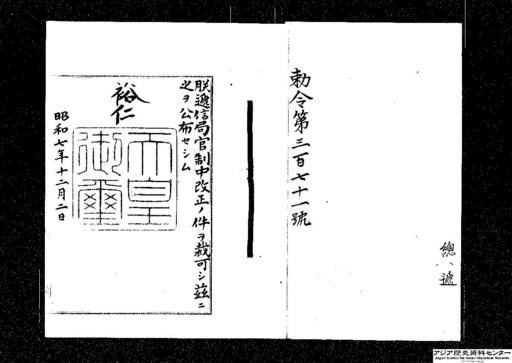 勅令第三百七十一號
總、遞
朕遞信局官制中改正ノ件ヲ裁可シ茲ニ
之ヲ公布セシム
裕仁
天皇御璽
昭和七年十二月二日
アジア歴史資料センター
Japan Center for Asian Historical Records